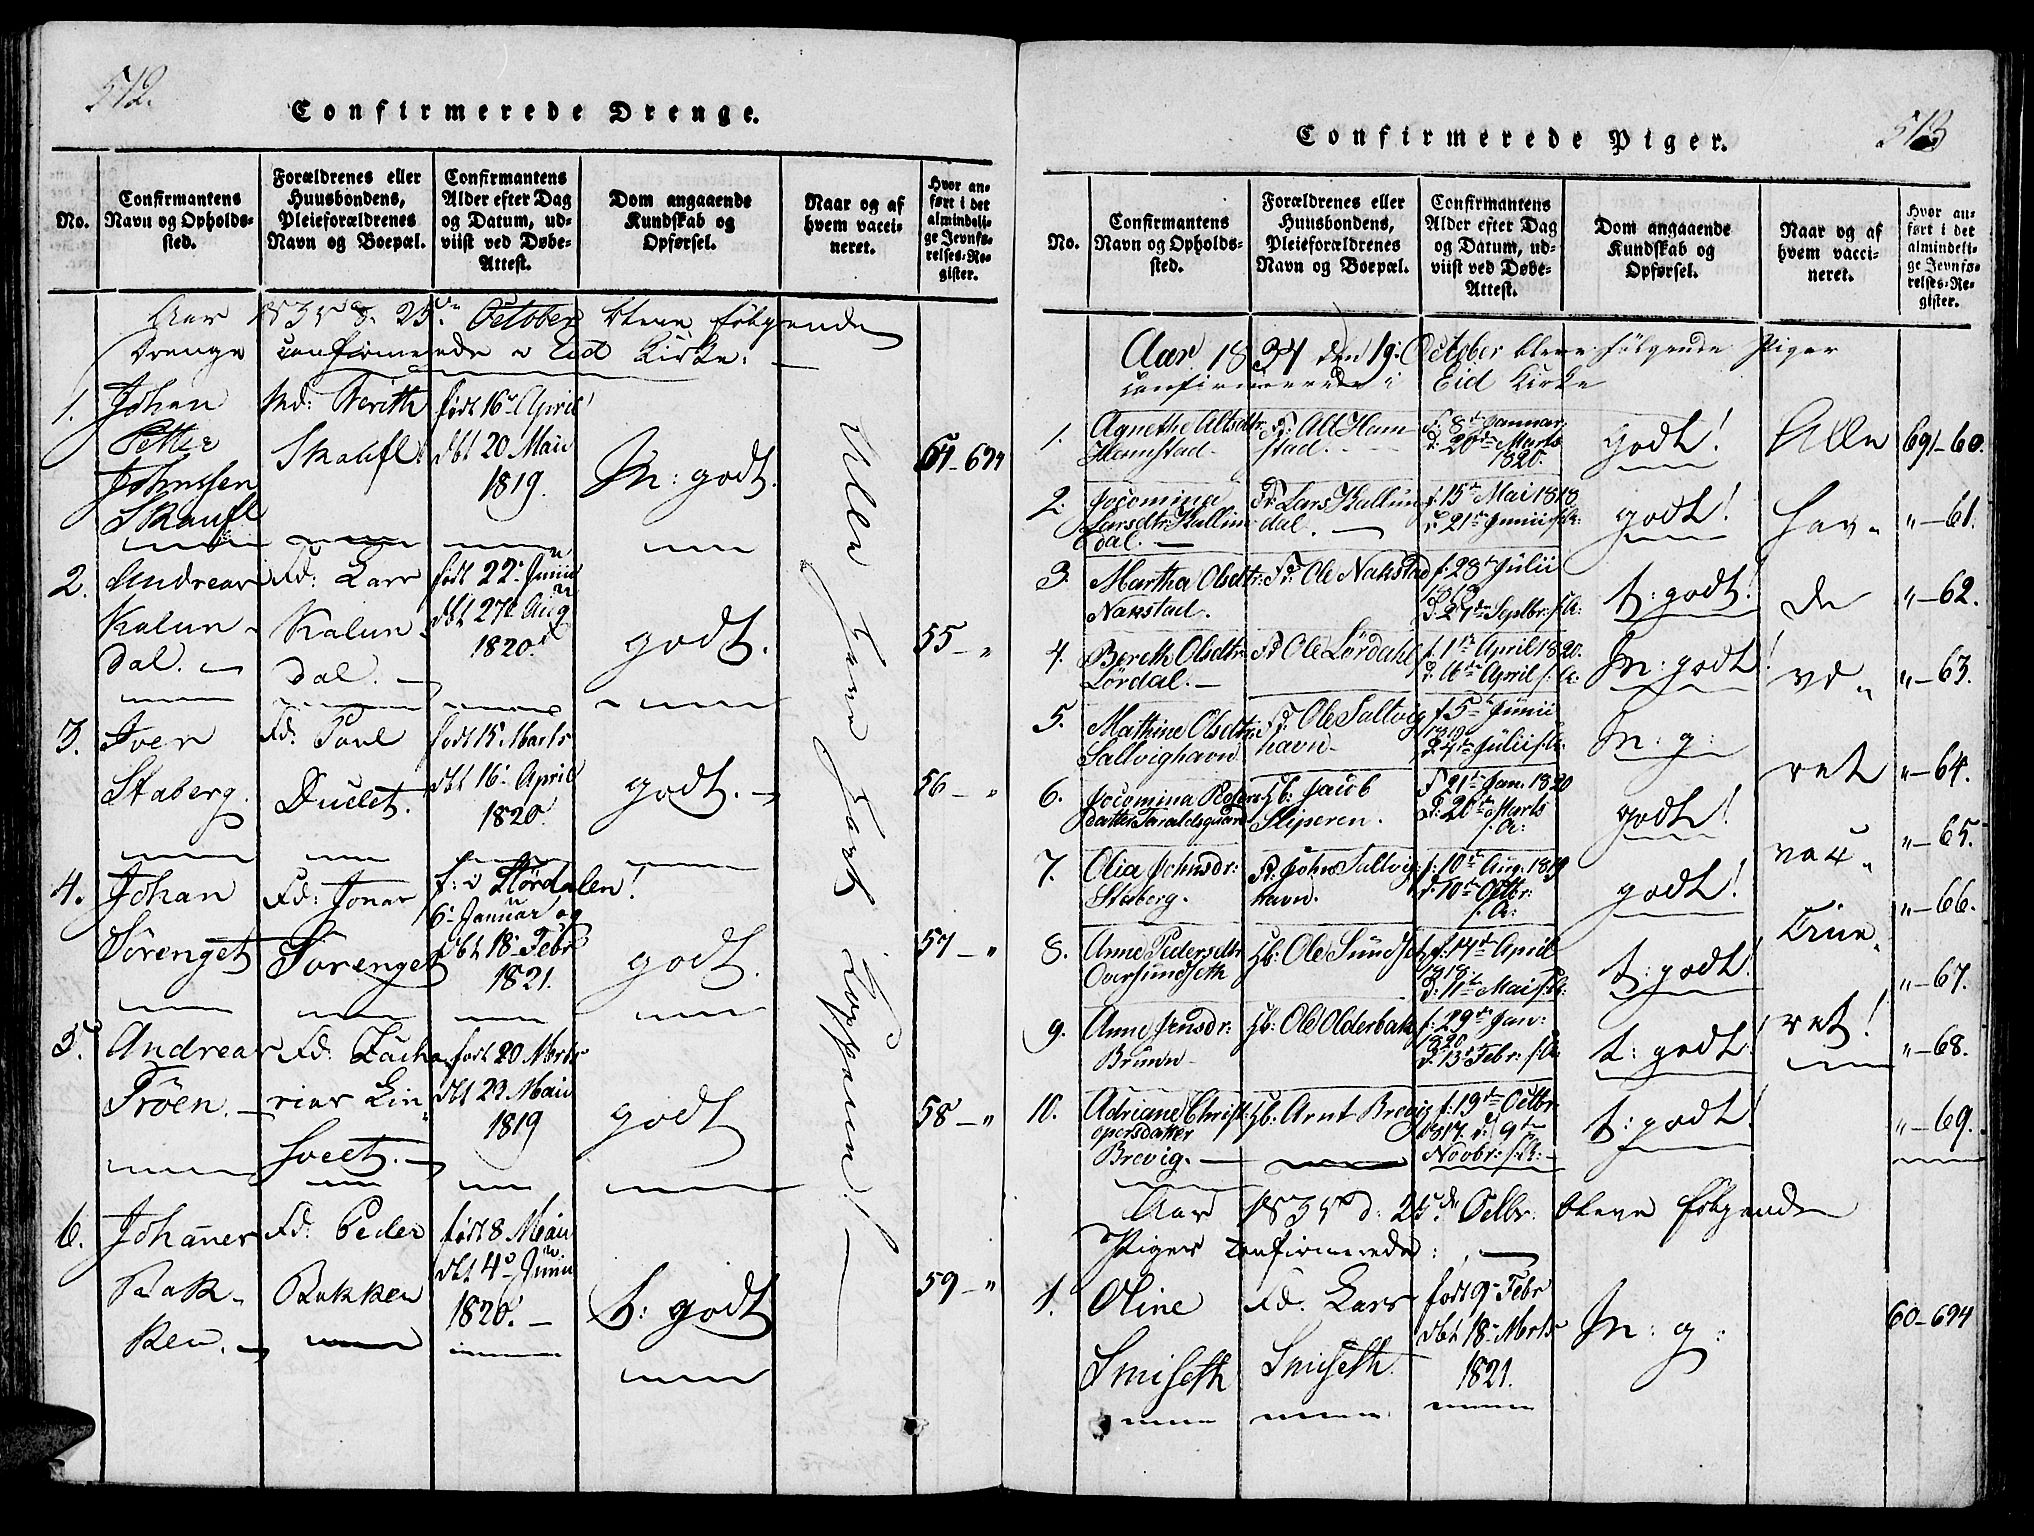 512.
Confirmerede Drenge.
No.
Confirmantens
Navn og Opholds-
sted.
Forældrenes eller
Huusbondens,
Pleieforældrenes
Navn og Boepæl.
Confirmantens
Alder efter Dag
og Datum, ud-
viist ved Døbe-
Attest.
Dom angaaende
Kundskab og
Opførsel.
Naar og af
hvem vacci-
neret.
Hvor an-
ført i det
almindeli-
ge Jevnfø-
relses-Re-
gister.
Aar 1835 d. 25de October bleve følgende
Drenge confirmerede i Eid Kirke:
1.
Johan
Petter
Johnssen
Skaufl
Md: Berith
Skaufl:
født 16de April
dbt 20 Maii
1819.
M: godt.
54-694
2.
Andreas
Kalun-
dal.
Fd: Lars
Kalun-
dal.
født 22de Junii
dbt 27de Aug
1820.
godt.
55-"
3.
Iver
Staberg.
Fd. Poul
Duclet.
født 15 Marts
dbt 16de April
1820.
godt.
56-"
4.
Johan
Sörenget
Fd: Jonas
Sörenget
f: i Stördalen!
6te Januar og
dbt 18de Febr
1821.
godt.
57-"
5.
Andreas
Tröen.
Fd: Zacha
rias Lin-
sveet.
født 20 Marts
dbt 23 Maii
1819
godt
58-"
6.
Johannes
Bak-
ken.
Fd: Peder
Bakken
født 8 Maii
dbt 4de Junii
1820.
t: godt
59-"
Alle have havt Kopperne!
513
Confirmerede Piger.
No.
Confirmantens
Navn og Opholds-
sted.
Forældrenes eller
Huusbondens,
Pleieforældrenes
Navn og Boepæl.
Confirmantens
Alder efter Dag
og Datum, ud-
viist ved Døbe-
Attest.
Dom angaaende
Kundskab og
Opførsel.
Naar og af
hvem vacci-
neret.
Hvor an-
ført i det
almindeli-
ge Jevnfø-
relses-Re-
gister.
Aar 1834 den 19: October bleve følgende Piger
confirmerede i Eid Kirke
1.
Agnethe Altsdtr:
Hamstad.
Fd: Alt Ham
stad.
f: 8de Januar
d: 20de Marts
1820.
godt!
691-60.
2:
Jocomina
Larsdtr: Kallun
dal.
Fd: Lars Kallun
dal.
f: 15de Mai 1818.
d: 21de Junii s: A:
godt!
"-61.
3.
Martha Olsdtr:
Nakstad.
Fd: Ole Nakstad
f: 28de Julii
1819
d: 27de Septbr: s: A:
t: godt!
"-62.
4.
Bereth Olsdtr:
Lördal.
Fd Ole Lördahl
f: 1ste April 1820.
d: 6te April s: A:
M: godt!
"-63.
5.
Mathine Olsdtr:
Saltvighavn
Fd: Ole Saltvig
havn
f: 5te Junii
1819
d: 4de Julii s: A:
M: g:
"-64.
6.
Jocomina Peders
datter Taraldsgaard
Hb: Jacob
Sliperen.
F 21de Jan. 1820
D: 20de Marts
s. A:
godt!
"-65.
7.
Olia Johnsdr:
Staberg.
Fd. John Saltvig
havn.
f: 10de Aug: 1819
d: 10de Octbr:
s. A:
godt!
"-66.
8.
Anne Pedersdtr
Oversundseth
Hb: Ole Sundset
f: 14de April
1818
d: 11te Mai s: A:
t: godt!
"-67.
9.
Anne Jensdr:
Bruun
Hb: Ole Olderbak
f: 29de Jan:
1820
d: 13de Febr: s: A:
t: godt!
"-68.
10.
Adriane Christ
opersdatter
Brevig.
Hb: Arnt Brevig
f: 19de Octbr
1817. d: 9de
Novbr: s: A:
t: godt!
"-69.
Alle
hav-
de
væ-
ret
vac-
cine-
ret!
Aar 1835 d: 25de Octbr: bleve følgende
Piger confirmerede:
1.
Oline
Smiseth
Fd: Lars
Smiseth
født 9de Febr
dbt 18de Marts
1821.
M: g:
60-694